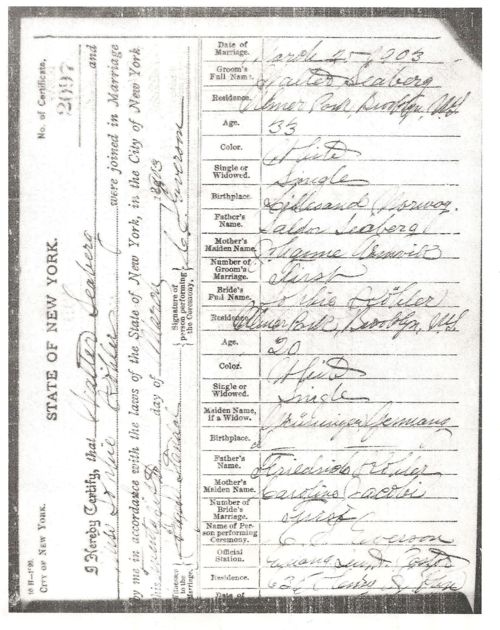 16 H—1900.
CITY OF NEW YORK.
STATE OF NEW YORK.
No. of Certificate,
2097
I Hereby Certify, that Walter Seaberg and
Miss Sophie Köhler were joined in Marriage
by me in accordance with the laws of the State of New York, in the City of New York,
this day of March
Witnesses
to the
Marriage.
Signature of
person performing
the Ceremony.
Date of
Marriage. March 25 1903
Groom's
Full Name. Walter Seaberg
Residence. Ulmer Park, Brooklyn,
Age. 33
Color. White
Single or
Widowed. Single
Birthplace. Lillesand Norway.
Father's
Name. Seaberg
Mother's
Maiden Name.
Number of
Groom's
Marriage. First
Bride's
Full Name. Sophie Köhler
Residence. Ulmer Park, Brooklyn,
Age. 20
Color. White
Single or
Widowed. Single
Maiden Name,
if a Widow.
Birthplace. Germany
Father's
Name. Friedrich Köhler
Mother's
Maiden Name. Caroline Jacobi
Number of
Bride's
Marriage. First
Name of Per-
son performing
Ceremony.
Official
Station.
Residence.
Date of